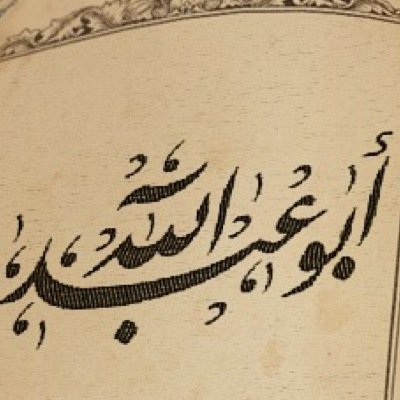 أبو عبد الله